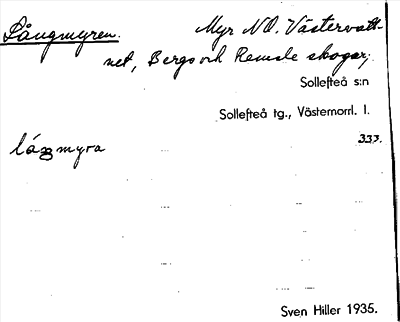 Långmyren. Myr NO. Västervatt-
net, Bergs och Remsle skogar,
Sollefteå s:n
Sollefteå tg., Västernorrl. l.
333.
myra
Sven Hiller 1935.